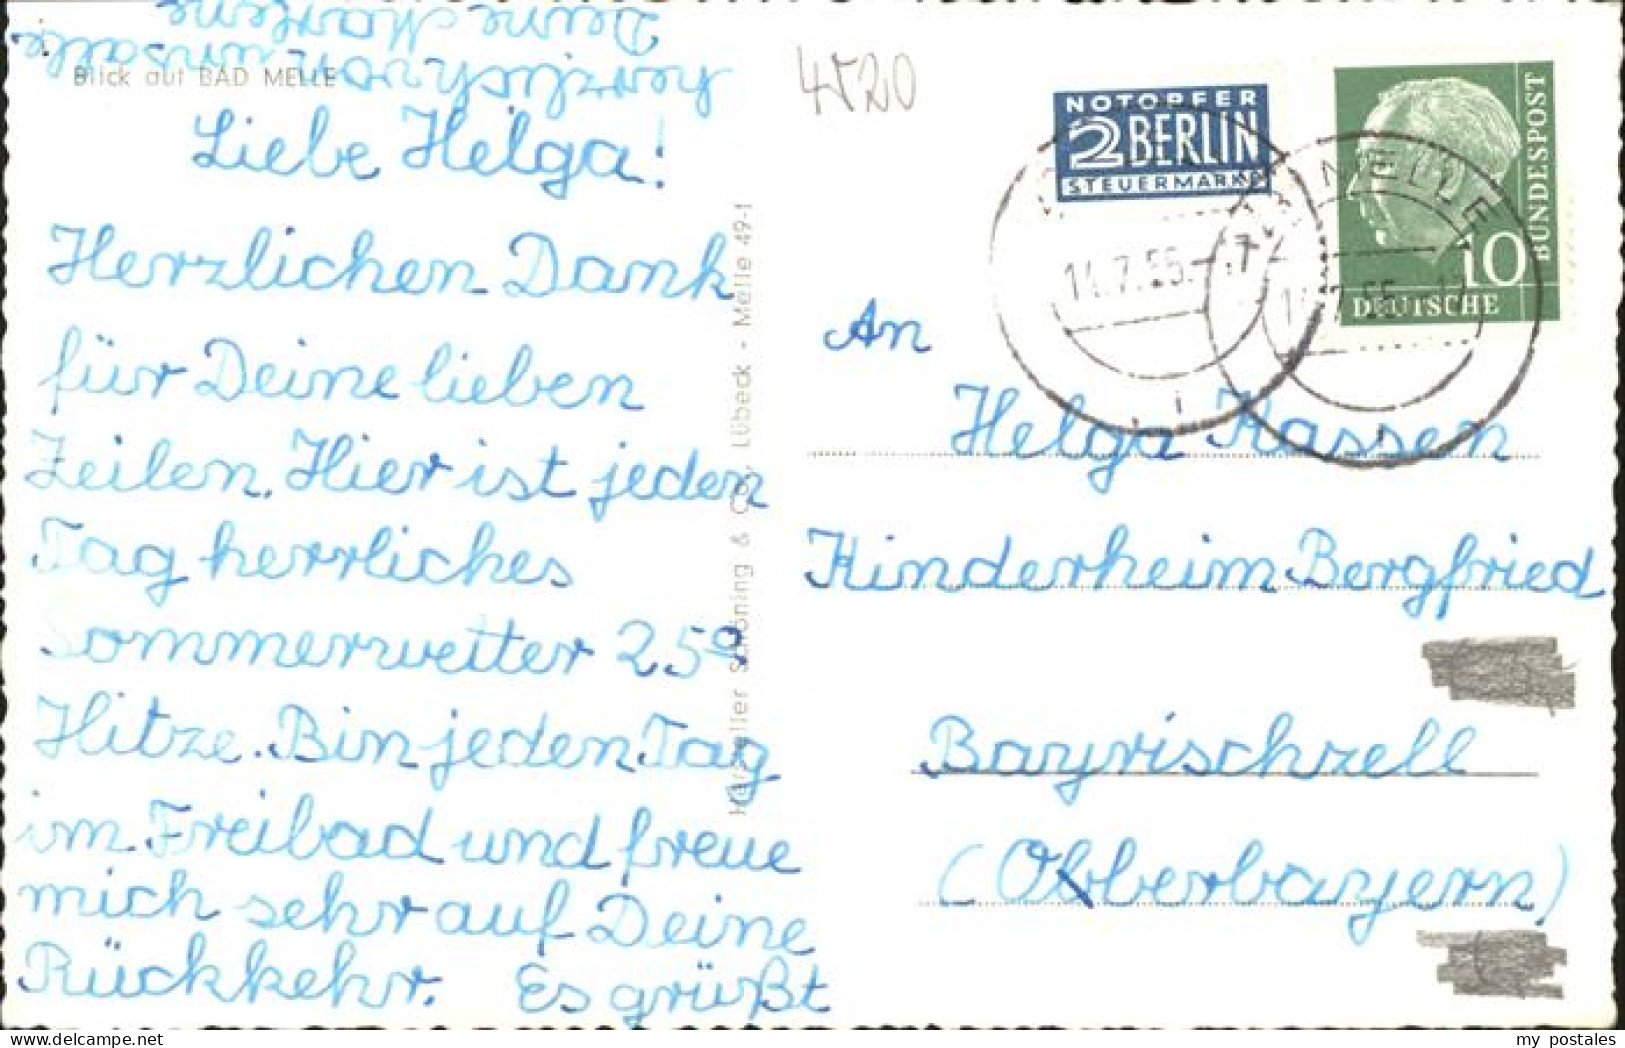 Blick auf BAD MELLE
Liebe Helga!
Herzlichen Dank
für Deine lieben
Zeilen. Hier ist jeden
Tag herrliches
Sommerwetter 25°
Hitze. Bin jeden Tag
im Freibad und freue
mich sehr auf Deine
Rückkehr. Es grüßt
herzlich von uns alle
Deine Marlene
Hersteller Schöning & Co., Lübeck - Melle 49-1
4520
NOTOPFER
2 BERLIN
STEUERMARKE
DEUTSCHE
BUNDESPOST
10
MELLE
11.7.55.-17
An
Helga Kassen
Kinderheim Bergfried
Bayrischzell
(Obberbayern)
my postales